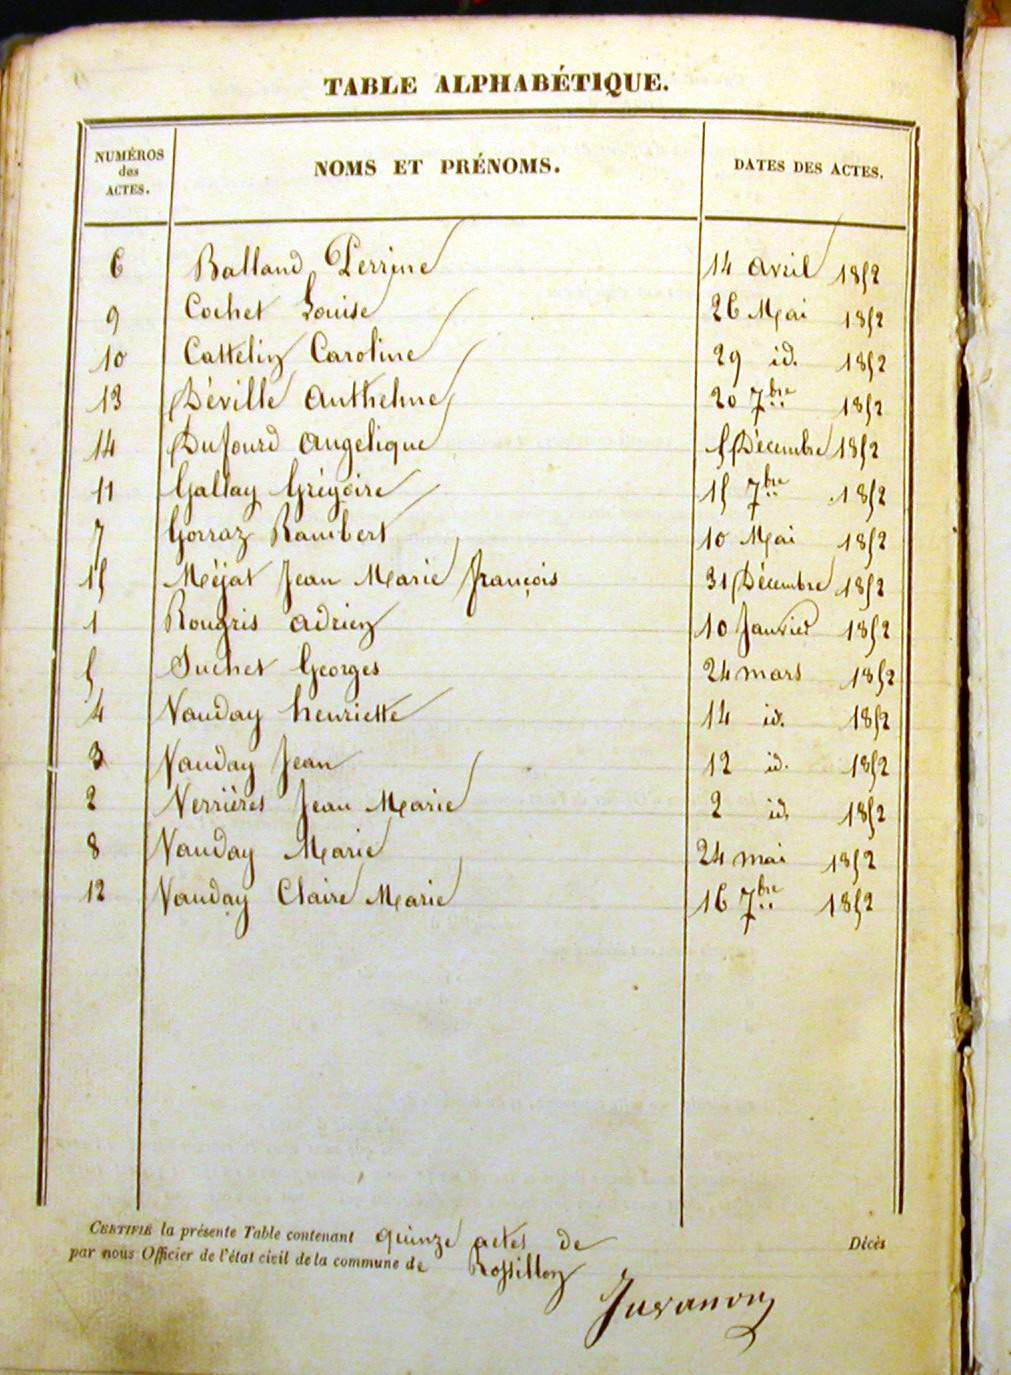 TABLE ALPHABÉTIQUE.
NUMÉROS des ACTES. NOMS ET PRÉNOMS. DATES DES ACTES.
6 Balland Perrine 14 avril 1852
9 Cochet Louise 26 Mai 1852
10 Cattelin Caroline 29 id. 1852
13 Déville Anthelme 20 7bre 1852
14 Dufourd Angelique 5 Décembre 1852
11 Gallay Grégoire 15 7bre 1852
7 Gorraz Rambert 10 Mai 1852
15 Méjat Jean Marie françois 31 Décembre 1852
1 Rougris Adrien 10 Janvier 1852
5 Suchet Georges 24 mars 1852
4 Vauday henriette 14 id. 1852
3 Vauday Jean 12 id. 1852
2 Verrières Jean Marie 2 id. 1852
8 Vauday Marie 24 mai 1852
12 Vauday Claire Marie 16 7bre 1852
CERTIFIÉ la présente Table contenant quinze actes de Décès
par nous Officier de l'état civil de la commune de Rossillon
Juvanon